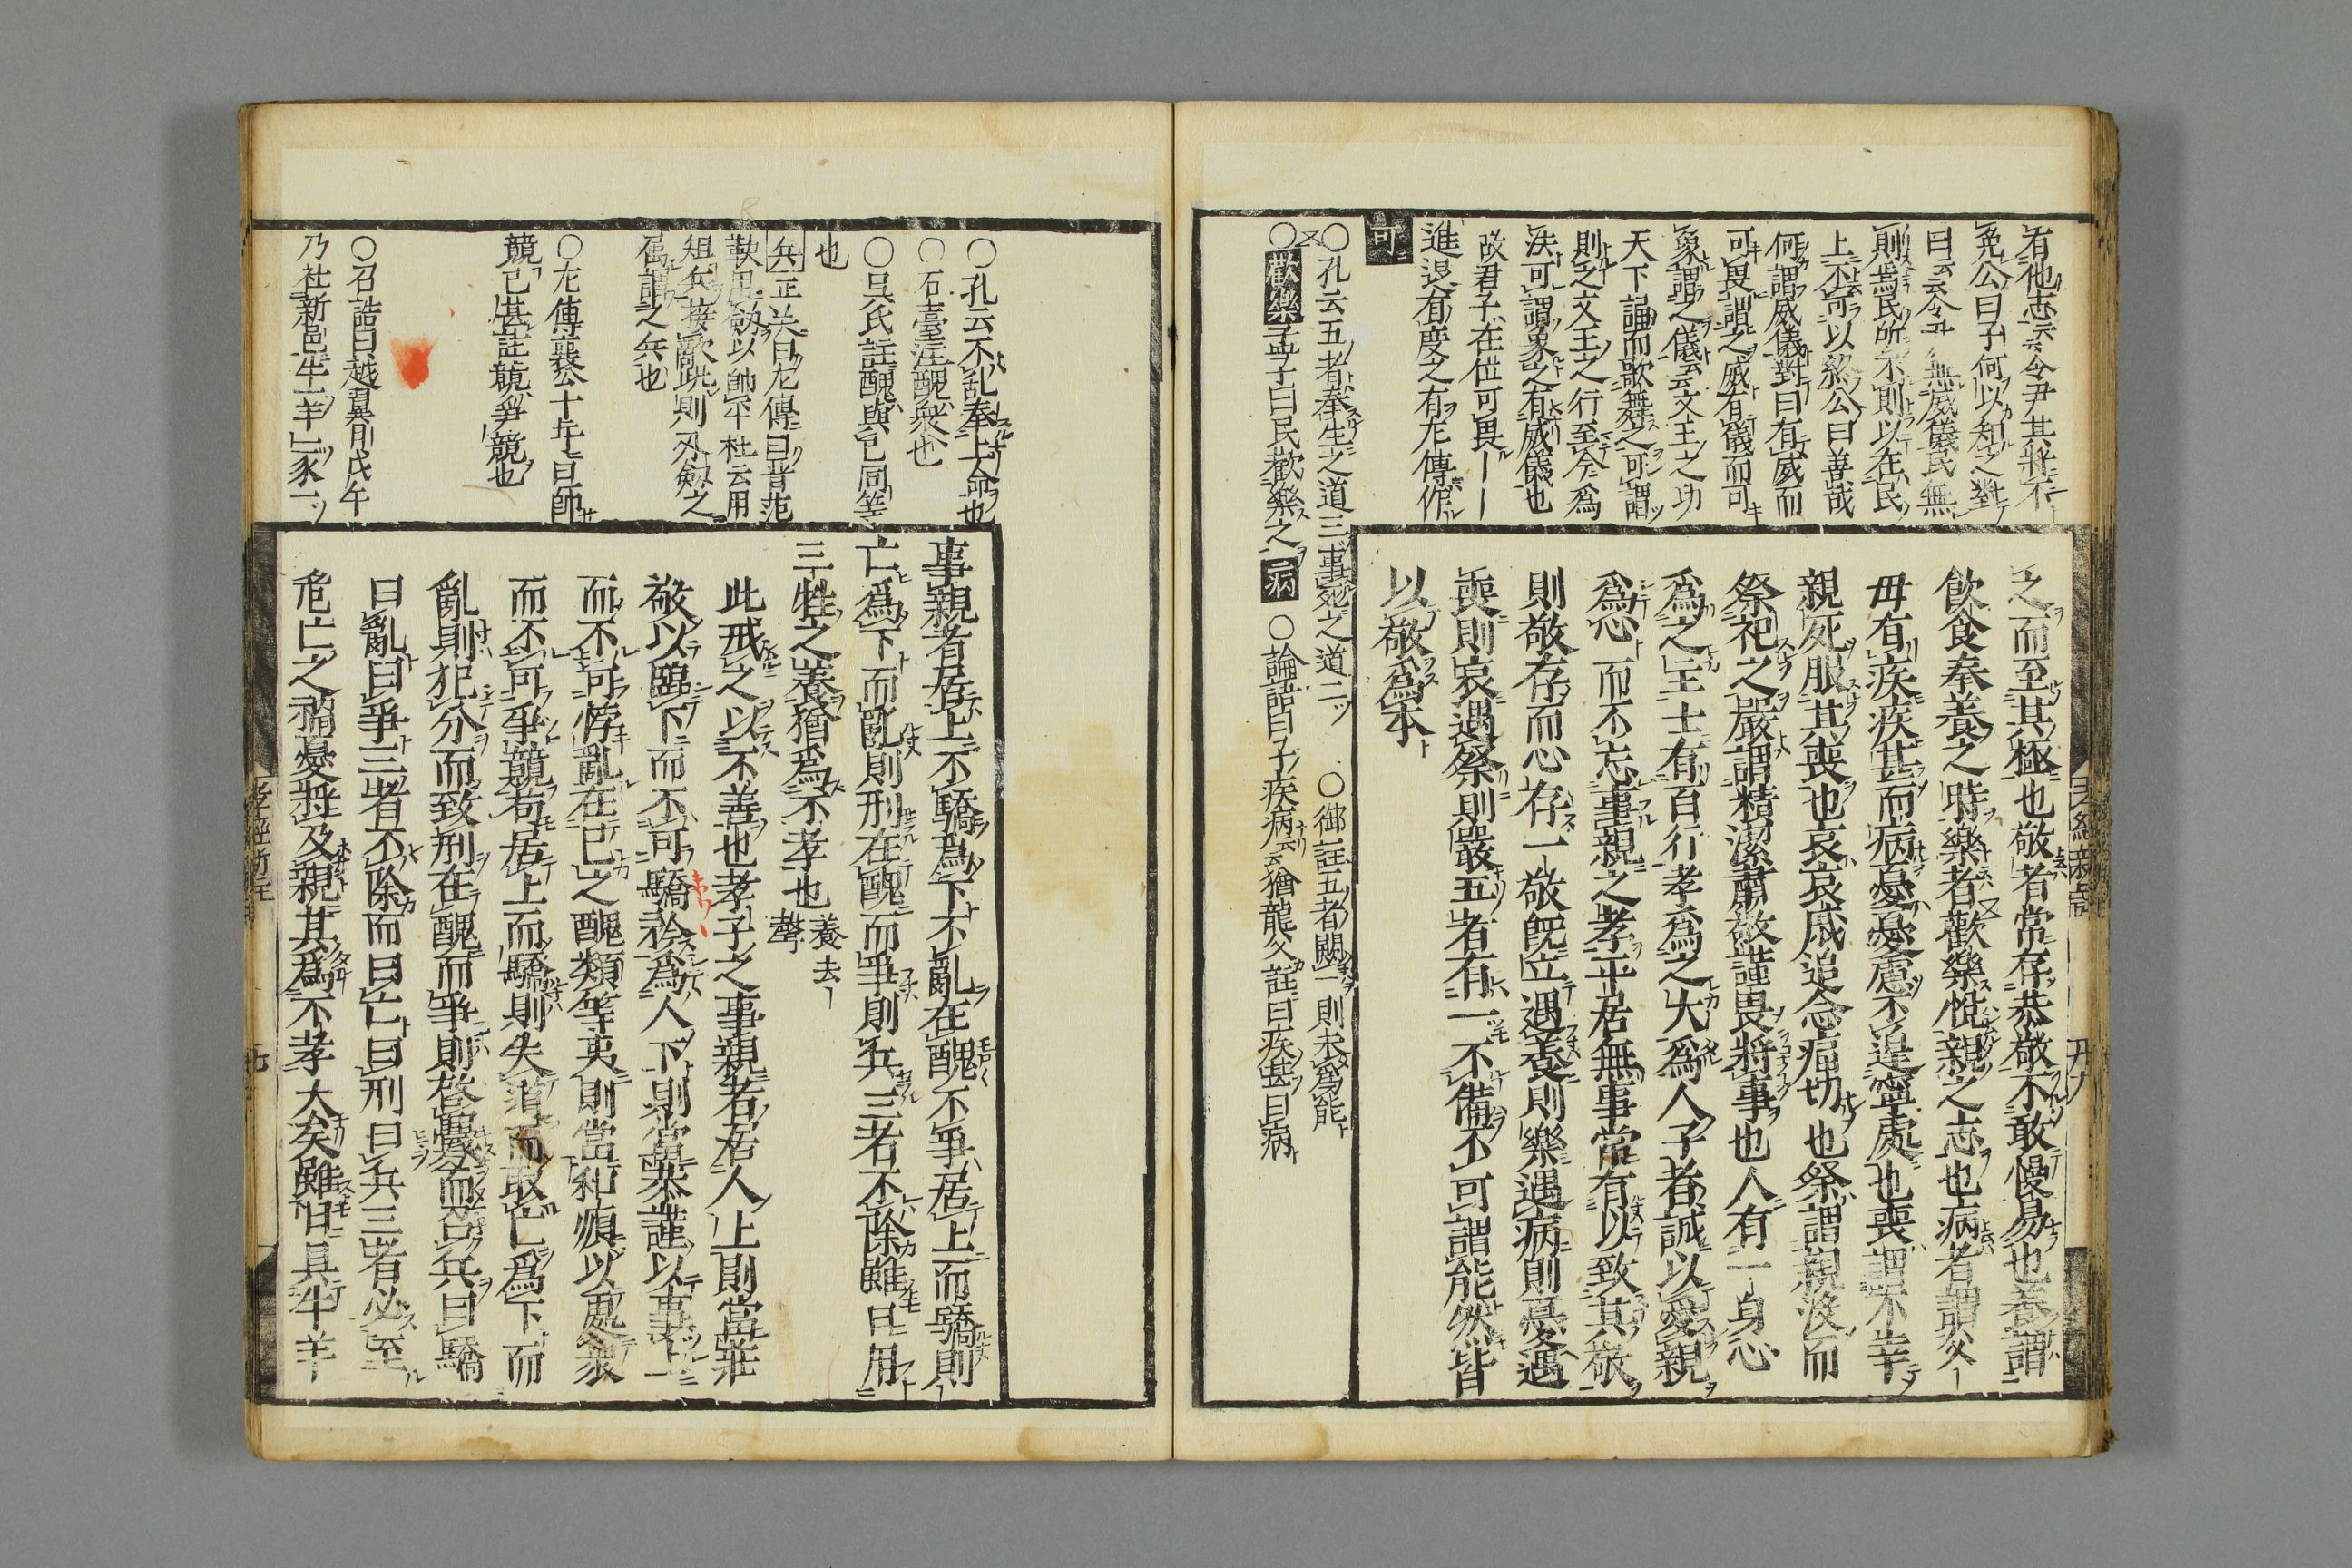 有他志云云令尹其將不
免公曰子何以知之對
曰云云令尹無威儀民無
則焉民所不則以在民
上不可以終公曰善哉
何謂威儀對曰有威而
可畏謂之威有儀而可
象謂之儀云云文王之功
天下誦而歌舞之可謂
則之文王之行至今爲
法可謂象之有威儀也
故君子在位可畏——
進退有度之有左傳作
可
○孔云五者奉生之道三事死之道二ツ
○御註五者闕一則未爲能
○歡樂孟子曰民歡樂之
病○論語曰子疾病云云猶龍父註曰疾甚曰病
之而至其極也敬者常存恭敬不敢慢易也養謂
飲食奉養之時樂者歡樂悅親之志也病者謂父
母有疾疾甚而病憂憂慮不遑寧處也喪謂不幸
親死服其喪也哀哀戚追念痛切也祭謂親没而
祭祀之嚴謂精潔肅敬謹畏將事也人有一身心
爲之主士有百行孝爲之大爲人子者誠以愛親
爲心而不忘事親之孝平居無事常有以致其敬
則敬存而心存一敬既立遇養則樂遇病則憂遇
喪則哀遇祭則嚴五者有一不備不可謂能然皆
以敬爲本
○孔云不乱奉上命也
○石臺注醜衆也
○吴氏註醜與己同等
也
兵正義曰左傳曰晋范
鞅用劔以帥卒杜云用
短兵接敵此則刃劔之
属謂之兵也
○左傳襄公十年曰師
競已甚註競爭競也
○召誥曰越翼日戊午
乃社新邑牛一羊一豕一ツ
事親者居上不驕爲下不亂在醜不爭居上而驕則
亡爲下而亂則刑在醜而爭則兵三者不除雖日用
三牲之養猶爲不孝也養去聲
此戒之以不善也孝子之事親若居人上則當莊
敬以臨下而不可驕矜爲人下則當恭謹以事上
而不可悖亂在己之醜類等夷則當和順以處衆
而不可爭競苟居上而驕則失道而取亡爲下而
亂則犯分而致刑在醜而爭則啓釁而召兵曰驕
曰亂曰爭三者不除而曰亡曰刑曰兵三者必至
危亡之禍憂將及親其爲不孝大矣雖日具牛羊